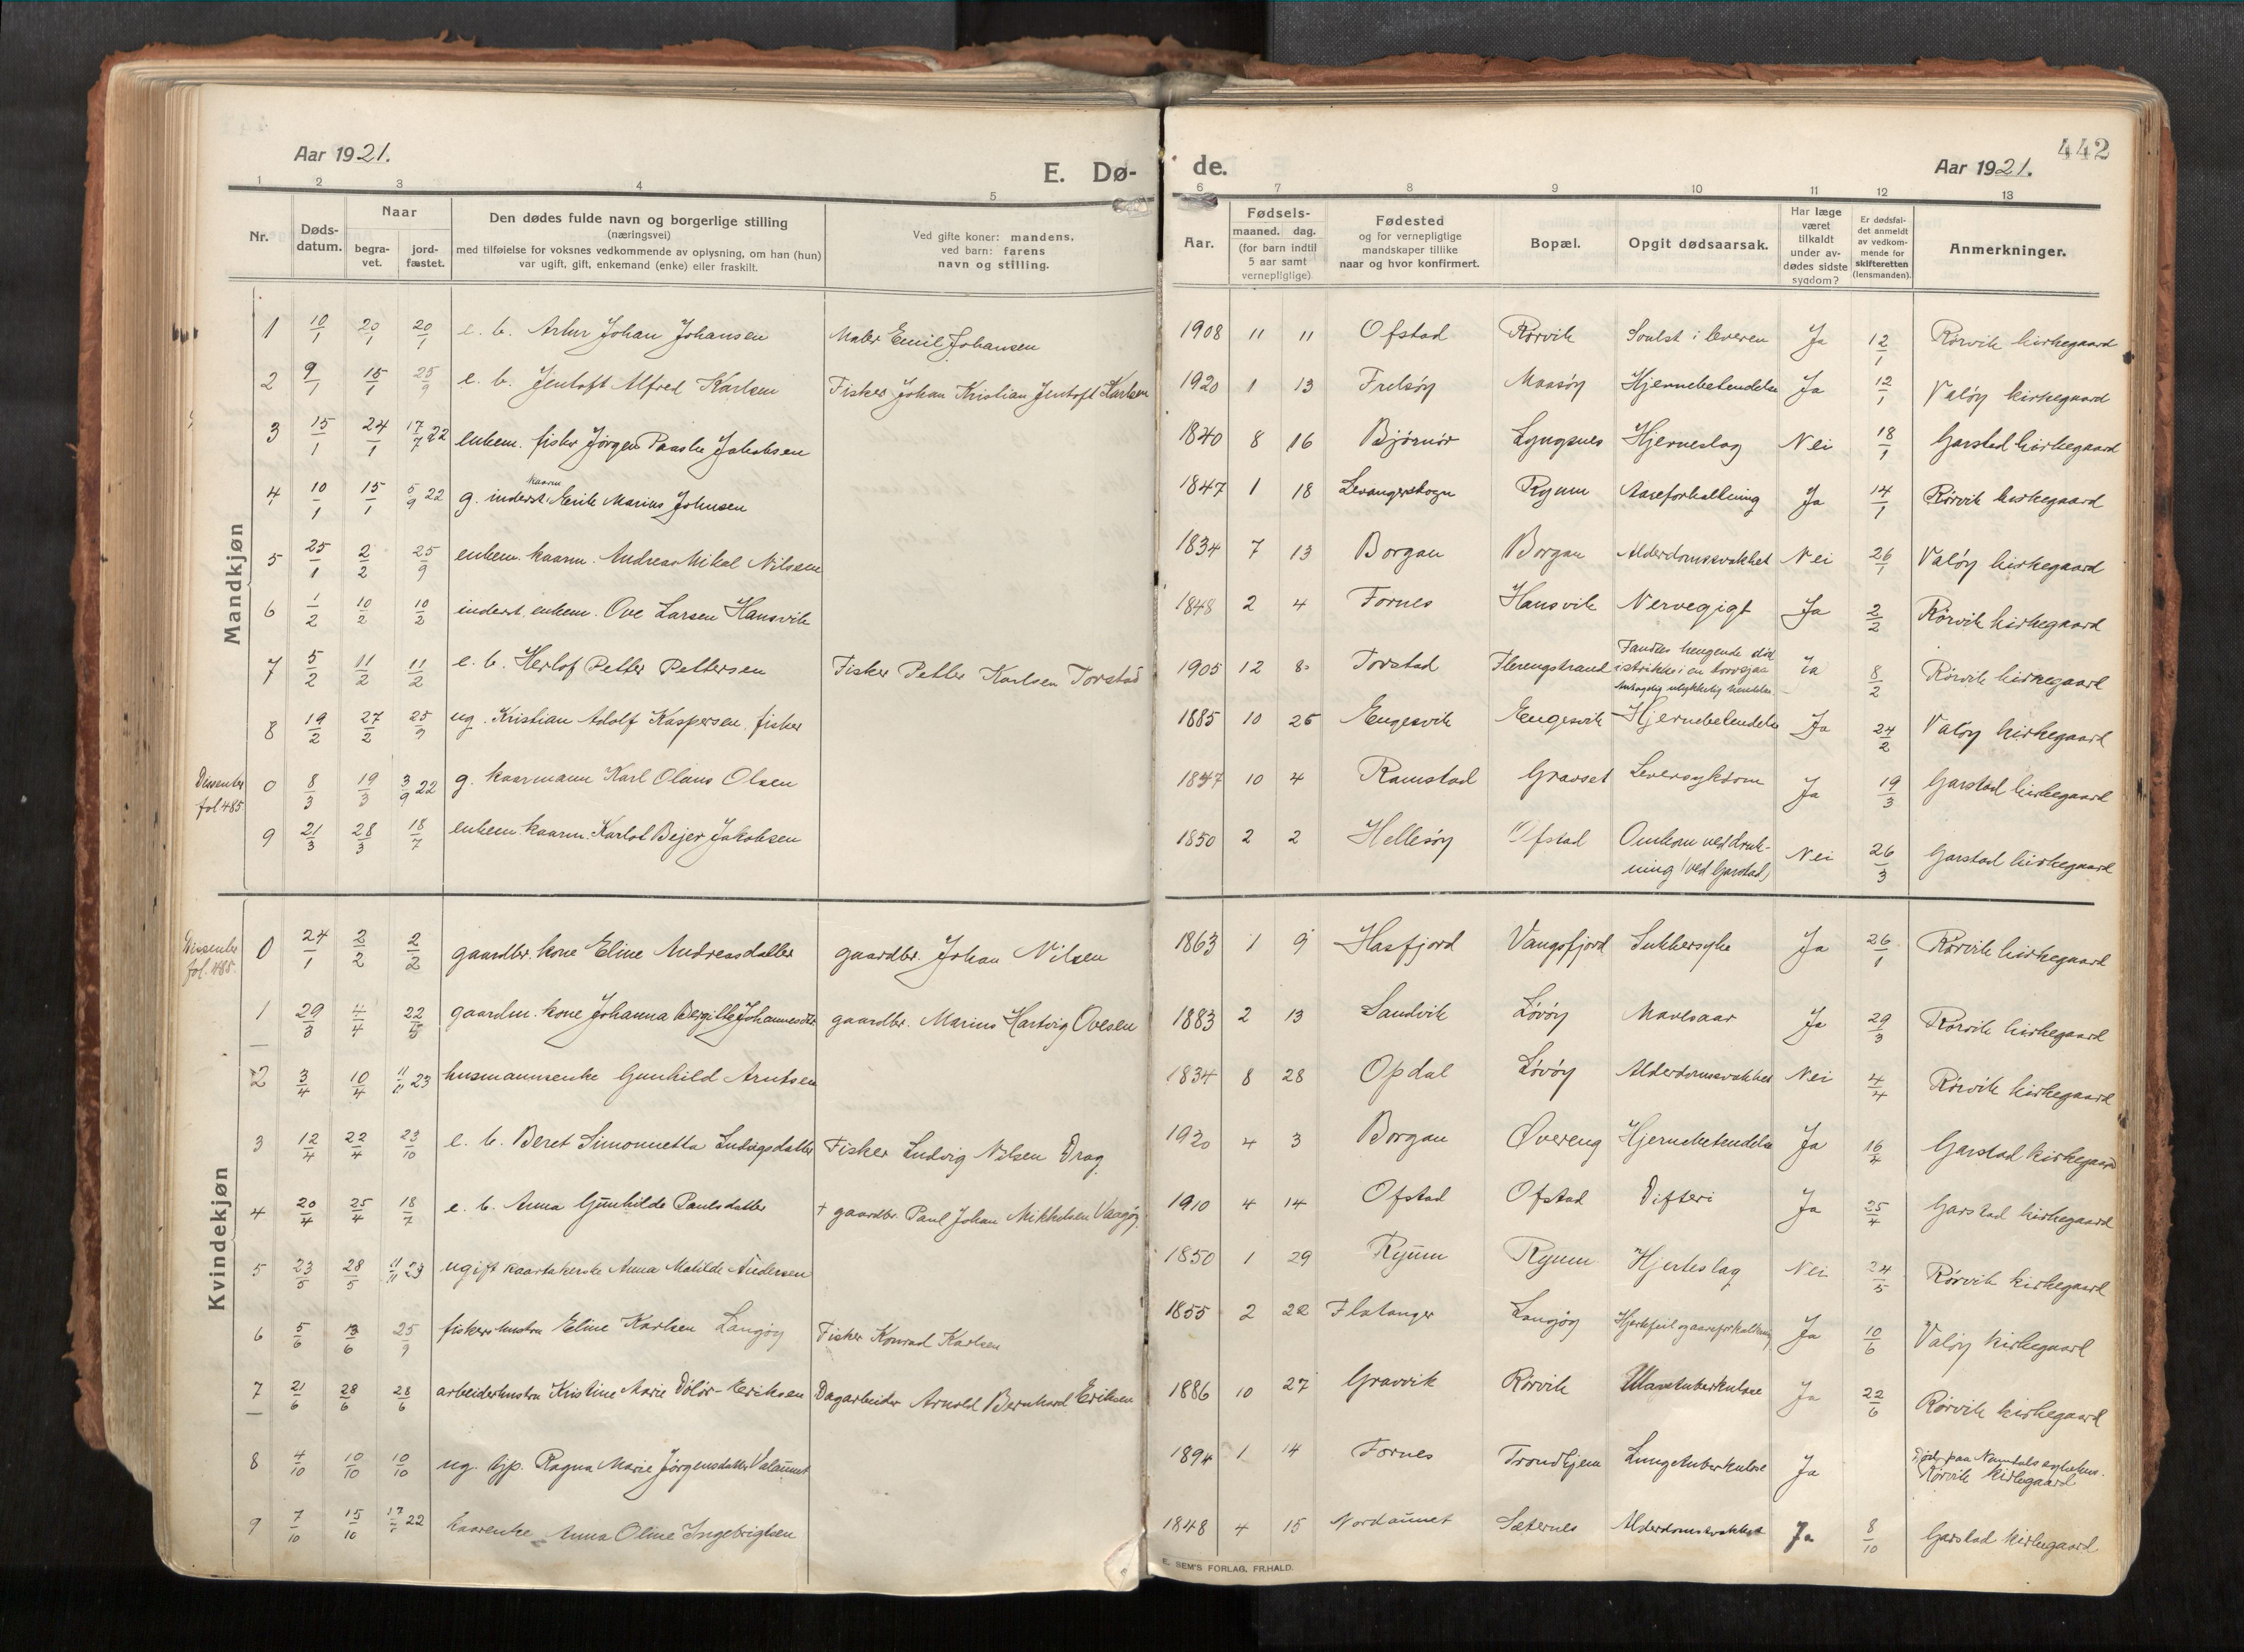 442
Aar 1921.
E. Dø-
de.
Aar 1921.
1 2 3 4 5
6 7 8 9 10 11 12 13
Nr.
Døds-
datum.
Naar
begra-
vet.
jord-
fæstet.
Den dødes fulde navn og borgerlige stilling
(næringsvei)
med tilføielse for voksnes vedkommende av oplysning, om han (hun)
var ugift, gift, enkemand (enke) eller fraskilt.
Ved gifte koner: mandens,
ved barn: farens
navn og stilling.
Aar.
Fødsels-
maaned. dag.
(for barn indtil
5 aar samt
vernepligtige)
Fødested
og for vernepligtige
mandskaper tillike
naar og hvor konfirmert.
Bopæl.
Opgit dødsaarsak.
Har læge
været
tilkaldt
under av-
dødes sidste
sygdom?
Er dødsfal-
det anmeldt
av vedkom-
mende for
skifteretten
(lensmanden).
Anmerkninger.
Mandkjøn
1 10/1 20/1 20/1 e. b. Artur Johan Johansen Maler Emil Johansen 1908 11 11 Ofstad Rørvik Svulst i leveren Ja 12/1 Rørvik kirkegaard
2 9/1 15/1 25/9 e. b. Jentoft Alfred Karlsen Fisker Johan Kristian Jentoft Karlsen 1920 1 13 Frelsøy Maasøy Hjernebetendelse Ja 12/1 Valøy kirkegaard
3 15/1 24/1 17/7 22 enkem. fisker Jørgen Paaske Jakobsen 1840 8 16 Bjørnør Lyngsnes Hjerneslag Nei 18/1 Garstad kirkegaard
4 10/1 15/1 5/9 22 g. inderst kaarm. Erik Marius Johnsen 1847 1 18 Levangerskogn Ryum Aareforkalkning Ja 14/1 Rørvik kirkegaard
5 25/1 2/2 25/9 enkem. kaarm. Andreas Mikal Nilsen 1834 7 13 Borgan Borgan Alderdomssvakhet Nei 26/1 Valøy kirkegaard
6 1/2 10/2 10/2 inderst, enkem. Ove Larsen Hansvik 1848 2 4 Fornes Hansvik Nervegigt Ja 2/2 Rørvik kirkegaard
7 5/2 11/2 11/2 e. b. Herlof Petter Pettersen Fisker Petter Karlsen Torstad 1905 12 8 Torstad Flerengstrand Fandtes hengende død
i strikke i en torvsjaa Ja 8/2 Rørvik kirkegaard
8 19/2 27/2 25/9 ug. Kristian Adolf Kaspersen, fisker 1885 10 25 Engesvik Engesvik Hjernebetendelse Ja 24/2 Valøy kirkegaard
Dissenter
fol. 485
0 8/3 19/3 3/9 22 g. kaarmann Karl Olaus Olsen 1847 10 4 Ramstad Gravset Leversykdom Ja 19/3 Garstad kirkegaard
9 21/3 28/3 18/7 enkem. kaarm. Karlot Bejer Jakobsen 1850 2 2 Hellesøy Ofstad Omkom ved druk-
ning (ved Garstad) Nei 26/3 Garstad kirkegaard
Kvindekjøn
Dissenter
fol. 485.
0 24/1 2/2 2/2 gaardbr. kone Eline Andreasdatter gaardbr. Johan Nilsen 1863 1 9 Hasfjord Vangsfjord Sukkersyke Ja 26/1 Rørvik kirkegaard
1 29/3 4/4 22/5 gaardm. kone Johanna Bergitte Johannesdtr gaardbr. Marius Hartvig Ovesen 1883 2 13 Sandvik Løvøy Mavesaar Ja 29/3 Rørvik kirkegaard
2 3/4 10/4 11/11 23 husmannsenke Gunhild Arntsen 1834 8 28 Opdal Løvøy Alderdomssvakhet Nei 4/4 Rørvik kirkegaard
3 12/4 22/4 23/10 e. b. Beret Simonnetta Ludvigsdatter Fisker Ludvig Nilsen Drag 1920 4 3 Borgan Øvereng Hjernebetendelse Ja 16/4 Garstad kirkegaard
4 20/4 25/4 18/7 e. b. Anna Gunhilde Paulsdatter + gaardbr. Paul Johan Mikkelsen Vaagøy. 1910 4 14 Ofstad Ofstad Difteri Ja 25/4 Garstad kirkegaard
5 23/5 28/5 11/11 23 ugift kaartakerske Anna Matilde Andersen 1850 1 29 Ryum Ryum Hjerteslag Nei 24/5 Rørvik kirkegaard
6 5/6 13/6 25/9 fiskerhustru Eline Karlsen Langøy Fisker Konrad Karlsen 1855 2 22 Flatanger Langøy Hjertefeil og aareforkalkning Ja 10/6 Valøy kirkegaard
7 21/6 28/6 28/6 arbeiderhustru Kristine Marie Dolør-Eriksen Dagarbeider Arnold Bernhard Eriksen 1886 10 27 Gravvik Rørvik Mavetuberkulose Ja 22/6 Rørvik kirkegaard
8 4/10 10/10 10/10 ug. hjp. Ragna Marie Jørgensdatter Valaunet 1894 1 14 Fornes Trondhjem Lungetuberkulose Ja Død paa Namdals sykehus.
Rørvik kirkegaard
9 7/10 15/10 22 kaarenke Anna Oline Ingebrigtsen 1848 4 15 Nordaunet Sæternes Alderdomssvakhet Ja 8/10 Garstad kirkegaard
E. SEM'S FORLAG, FR.HALD.